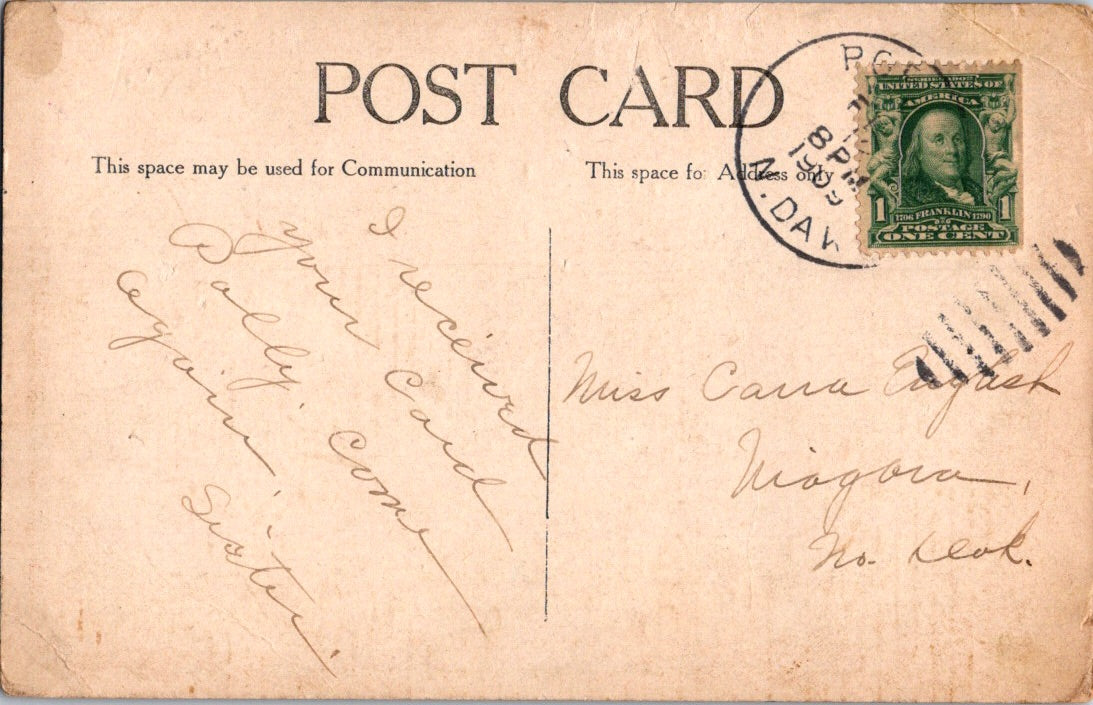 POST CARD
This space may be used for Communication
This space for Address only
N. DAK
8 PM
1909
SERIES 1902
UNITED STATES OF
AMERICA
1 1
1706 FRANKLIN 1790
POSTAGE
ONE CENT
I received
your Card
Dolly come
again.
Sister.
Miss Carra English
Niagara,
No. Dak.